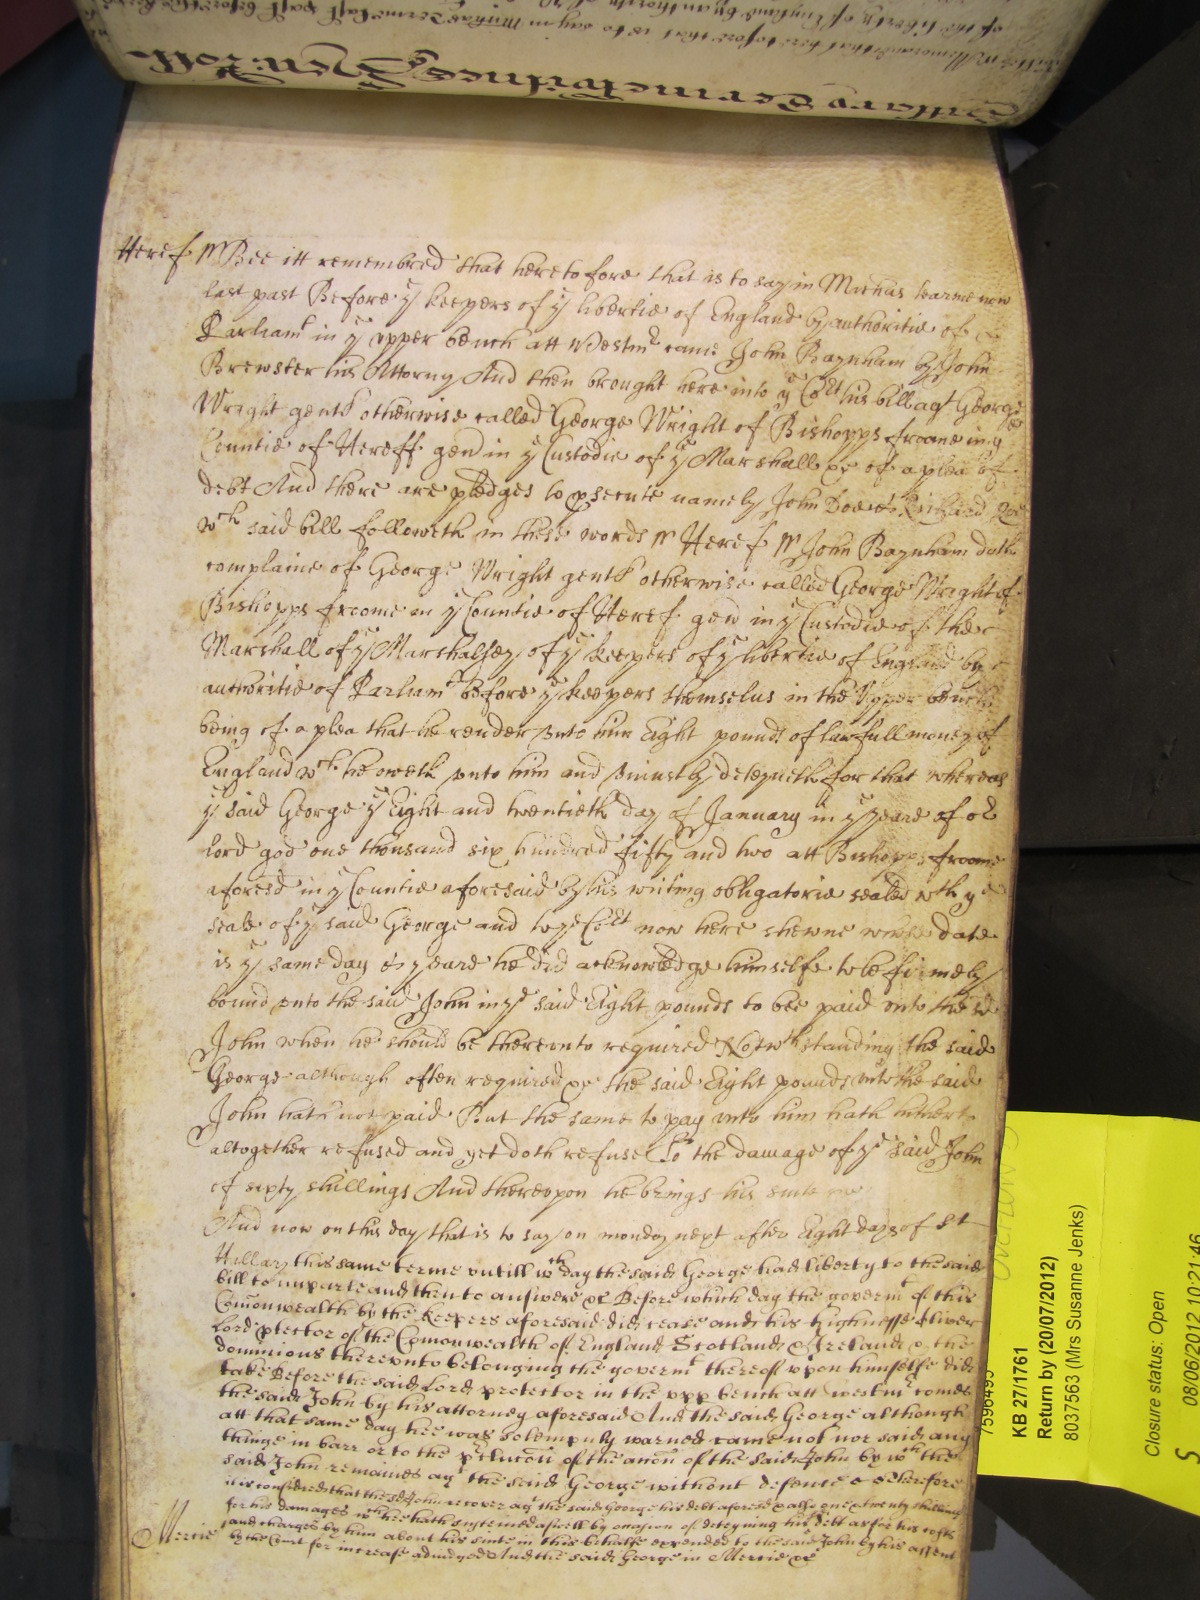 Hillary Terme Witnes Hen: Rolle
Heref ss Bee itt remembred that heretofore that is to say in Michās tearme now
last past Before yͤ keepers of yͤ libertie of England by authoritie of
Parliamᵗ in yͤ vpper bench att Westmʳ came John Baynham by John
Brewster his Attorny And then brought here into yͤ Coʳᵗ his bill agᵗ George
Wright gentł otherwise called George Wright of Bishopps froome in yͤ
Countie of Hereff gen̄ in yͤ Custodie of yͤ Marshall &c of a plea of
debt And there are pledges to ꝓsecute namely John Doe & Richard Roe
wᶜʰ said bill followeth in these words ss Heref ss John Baynham doth
complaine of George Wright gentł otherwise called George Wright of
Bishopps froome in yͤ Countie of Heref gen̄ in yͤ Custodie of the
Marshall of yͤ Marshalsey of yͤ keepers of yͤ libertie of England by
authoritie of Parliamᵗ before yͤ keepers themselus in the Vpper bench
being of a plea that he render vnto him Eight pounds of lawfull money of
England wᶜʰ he oweth vnto him and vniustly deteyneth for that whereas
yͤ said George yͤ Eight and twentieth day of January in yͤ yeare of oʳ
lord god one thousand six hundred fifty and two att Bishopps froome
aforesd in yͤ Countie aforesaid by his writing obligatorie sealed wᵗʰ yͤ
seale of yͤ said George and to yͤ Coʳᵗ now here shewne whose date
is yͤ same day & yeare he did acknowledge himselfe to be firmely
bound vnto the said John in yͤ said Eight pounds to bee paid vnto the sd
John when he should be therevnto required Notwᵗʰstanding the said
George although often required &c the said Eight pounds vnto the said
John hath not paid But the same to pay vnto him hath hitherto
altogether refused and yet doth refuse To the damage of yͤ said John
of sixty shillings And therevpon he brings his suite
And now on this day that is to say on monday next after Eight dayes of Sᵗ
Hillary this same terme vntill wᶜʰ day the said George had liberty to the said
bill to imparle and then to answere &c Before which day the governmᵗ of this
Com̄onwealth by the keepers aforesaid did cease and his highnesse Oliver
Lord ꝓtector of the Com̄onwealth of England Scotland & Ireland & the
dominions therevnto belonging the governmᵗ thereof vpon himselfe did
take Before the said Lord protector in the vpp bench att westmʳ comes
the said John by his attorney aforesaid And the said George although
att that same day hee was solempnly warned came not nor said any
thinge in barr or to the p̄clution of the ac̄on of the said John by wᶜʰ the
said John remaines agᵗ the said George without defence &c Therefore
it is considered that the sd John recover agᵗ the said George his debt aforesd & allso one & twenty shillings
for his damages wᶜʰ hee hath susteined aswell by occasion of deteyning his debt as for his costs
and charges by him about his suite in this behalfe expended to the said John by his assent
by the Court for increase adiudged And the said George in Mercie &c
Mercie
7596495
KB 27/1761
Return by (20/07/2012)
8037563 (Mrs Susanne Jenks)
Closure status: Open
08/06/2012 10:21:46
S